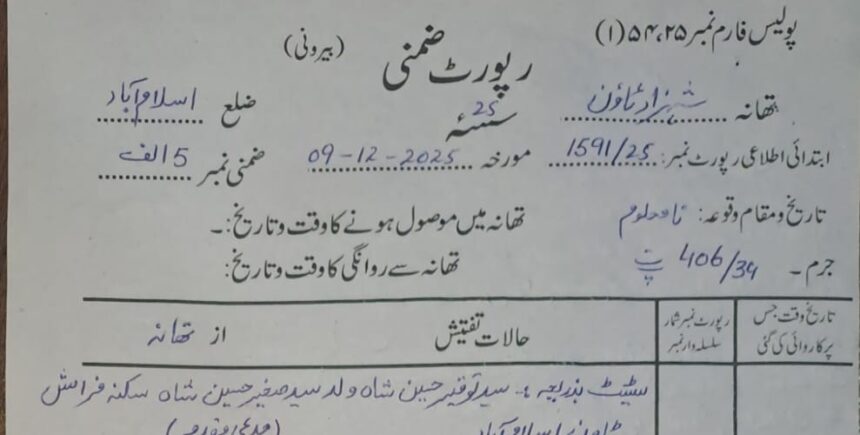 پولیس فارم نمبر ۵۴،۲۵(۱)
رپورٹ ضمنی (بیرونی)
تھانہ شہزاد ٹاؤن 25 سنہء ضلع اسلام آباد
ابتدائی اطلاعی رپورٹ نمبر: 1591/25 مورخہ 09-12-2025 ضمنی نمبر 5 الف
تاریخ و مقام وقوعہ: نامعلوم تھانہ میں موصول ہونے کا وقت و تاریخ:۔
جرم۔ 406/34 ت پ تھانہ سے روانگی کا وقت و تاریخ:
تاریخ وقت جس پر کاروائی کی گئی
رپورٹ نمبر شمار سلسلہ وار نمبر
حالات تفتیش از تھانہ
سٹیٹ بذریعہ :۔ سید توقیر حسین شاہ ولد سید صغیر حسین شاہ سکنہ فراش
ٹاؤن اسلام آباد (مدعی مقدمہ)